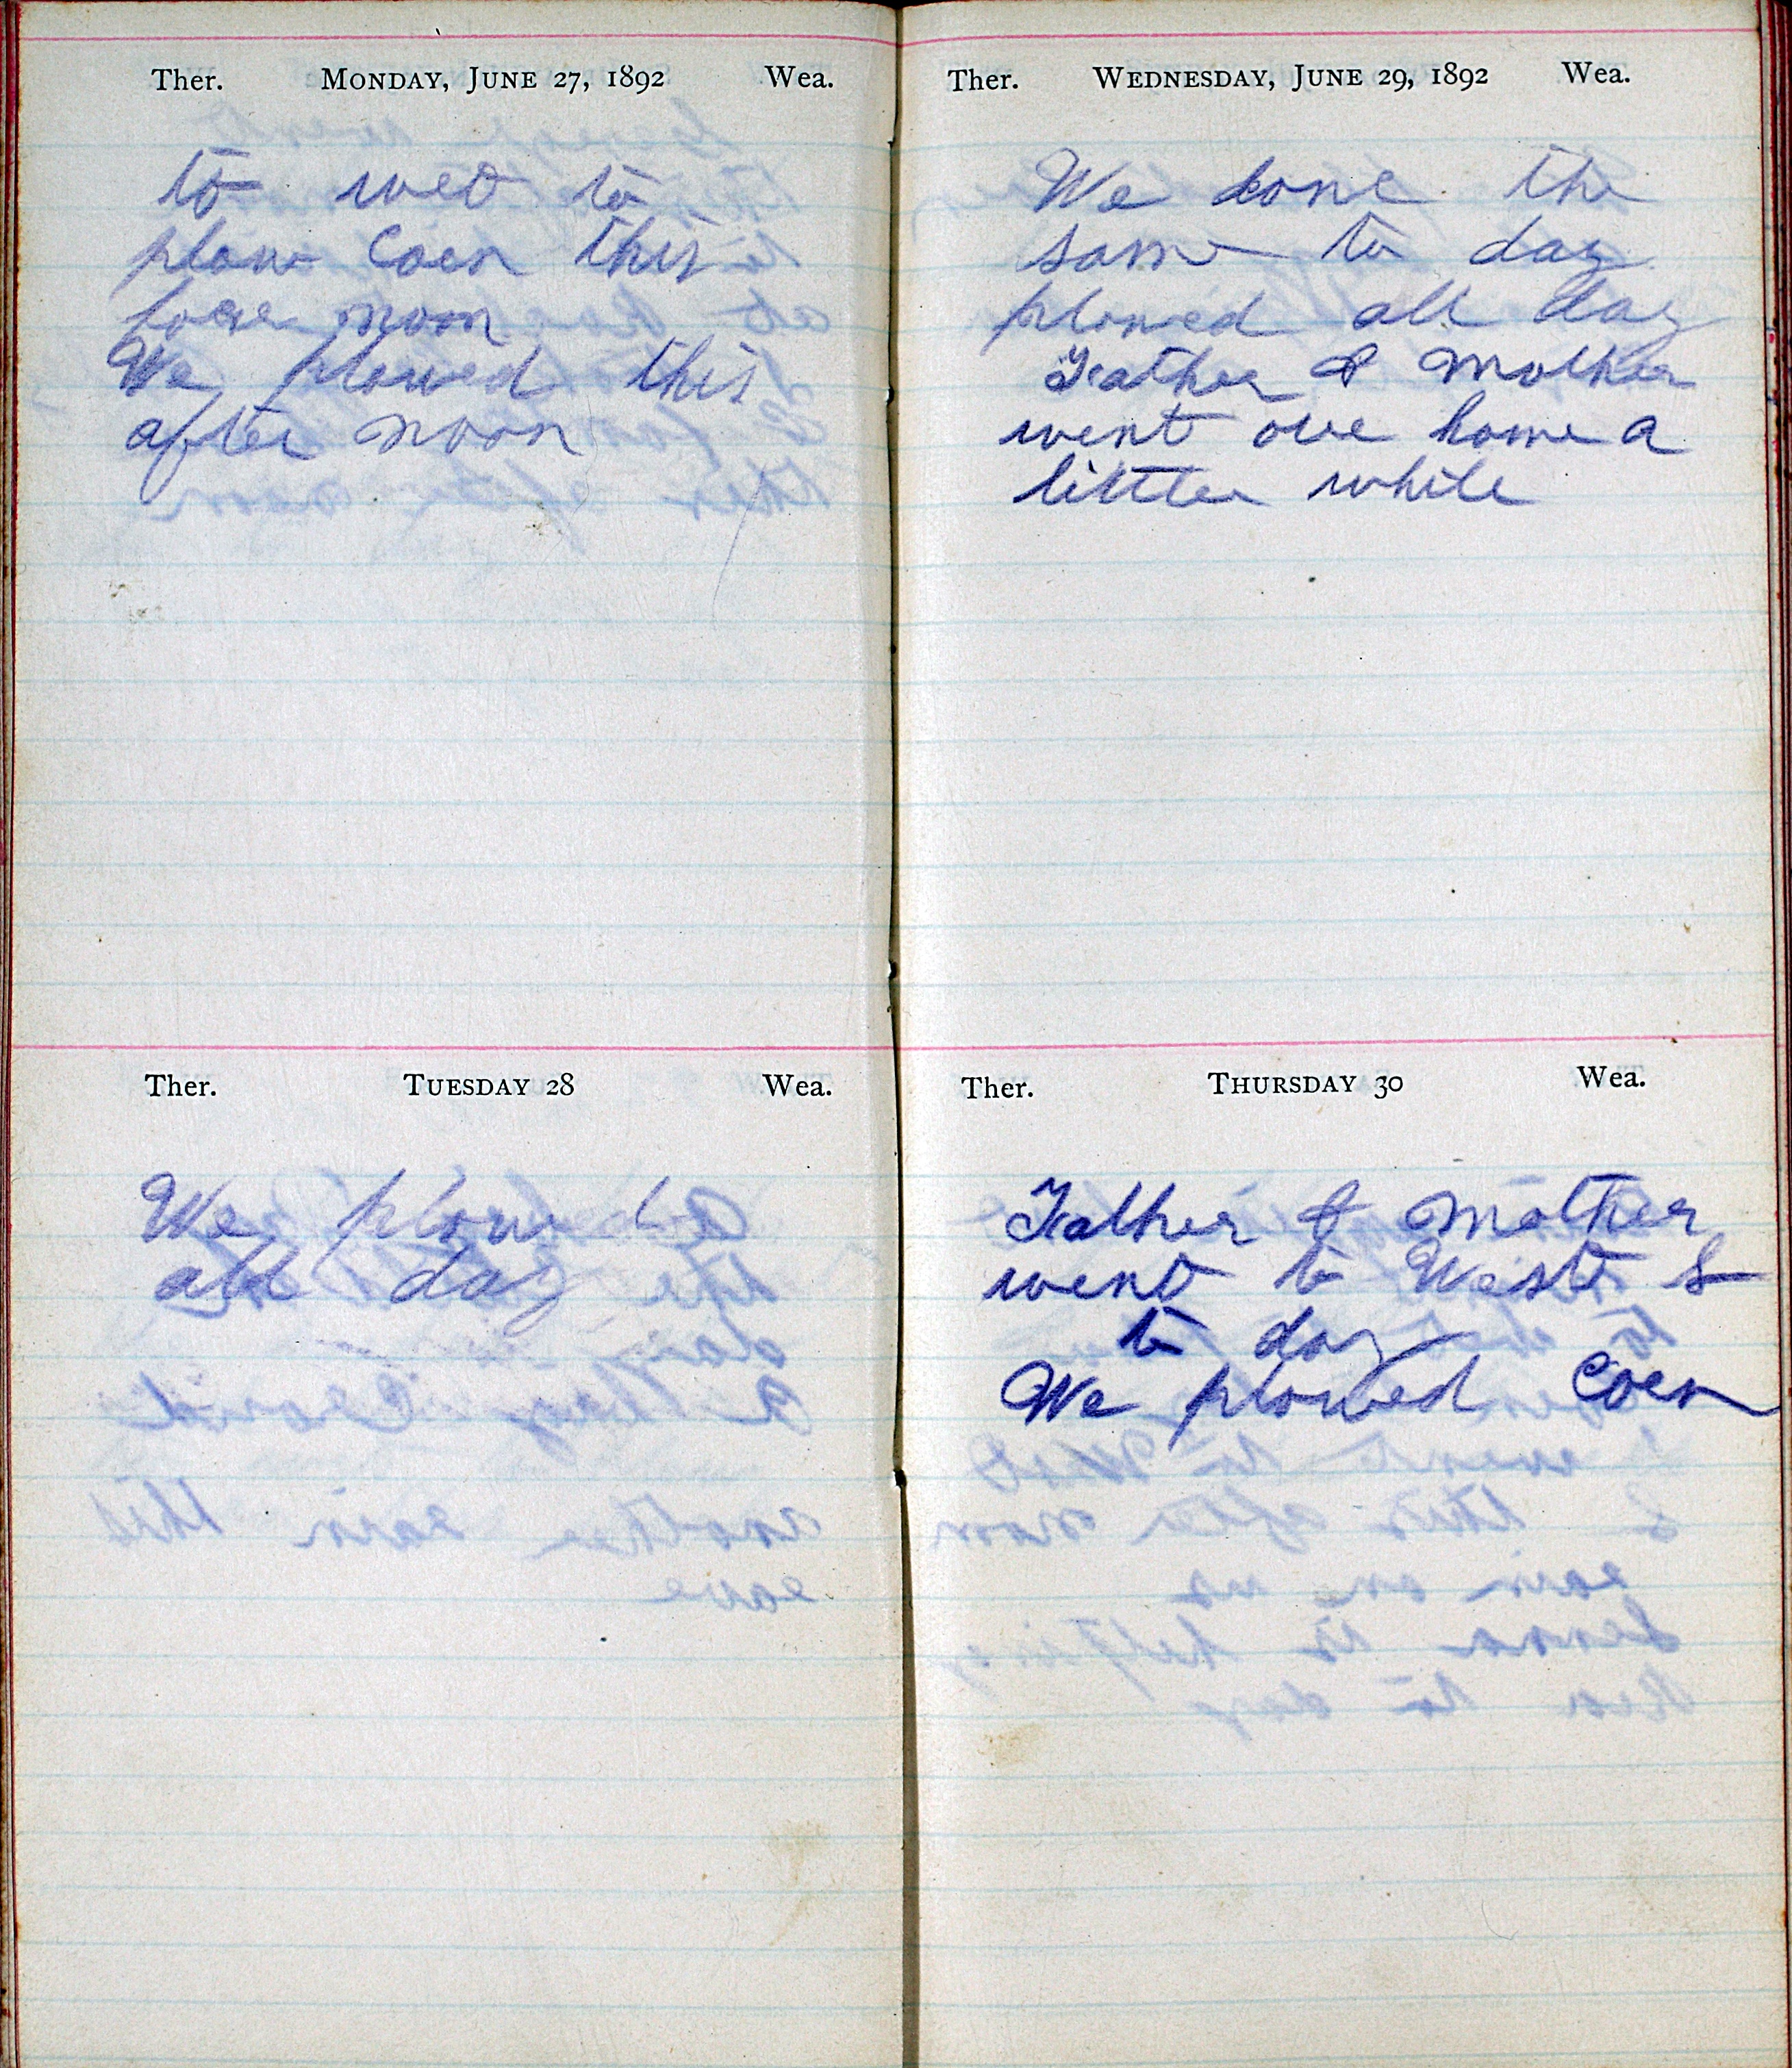 Ther. MONDAY, JUNE 27, 1892 Wea.
to wet to
plow Corn this
fore noon
We plowed this
after noon
Ther. TUESDAY 28 Wea.
We plowed
all day
Ther. WEDNESDAY, JUNE 29, 1892 Wea.
We done the
same to day
plowed all day
Father & Mother
went over home a
little while
Ther. THURSDAY 30 Wea.
Father & Mother
went to West S
to day
We plowed Corn